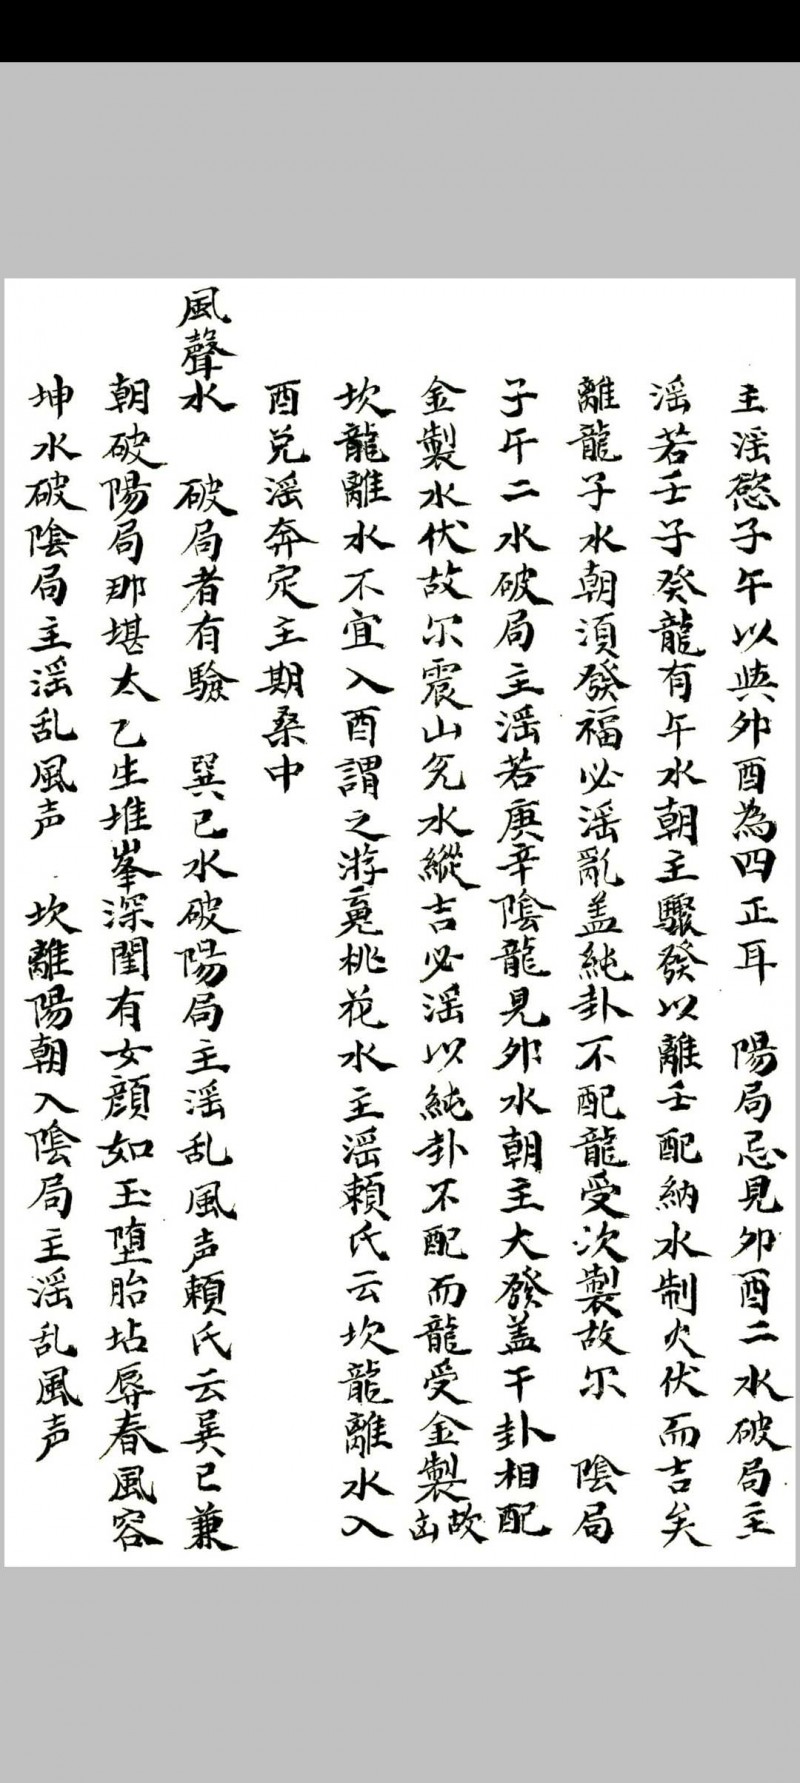 主滛慾子午以與卯酉為四正耳　陽局忌見卯酉二水破局主
滛若壬子癸龍有午水朝主驟發以離壬配納水制火伏而吉矣
離龍子水朝須發福必滛亂盖純卦不配龍受次製故尔　陰局
子午二水破局主滛若庚辛陰龍見卯水朝主大發盖干卦相配
金製水伏故尔震山兌水縱吉必滛以純卦不配而龍受金製故凶
坎龍離水不宜入酉謂之游䰟桃花水主滛賴氏云坎龍離水入
酉兌滛奔定主期桑中
風聲水　破局者有驗　巽巳水破陽局主滛乱風声賴氏云巽巳兼
朝破陽局那堪太乙生堆峯深閨有女顔如玉堕胎坫辱春風容
坤水破陰局主滛乱風声　坎離陽朝入陰局主滛乱風声